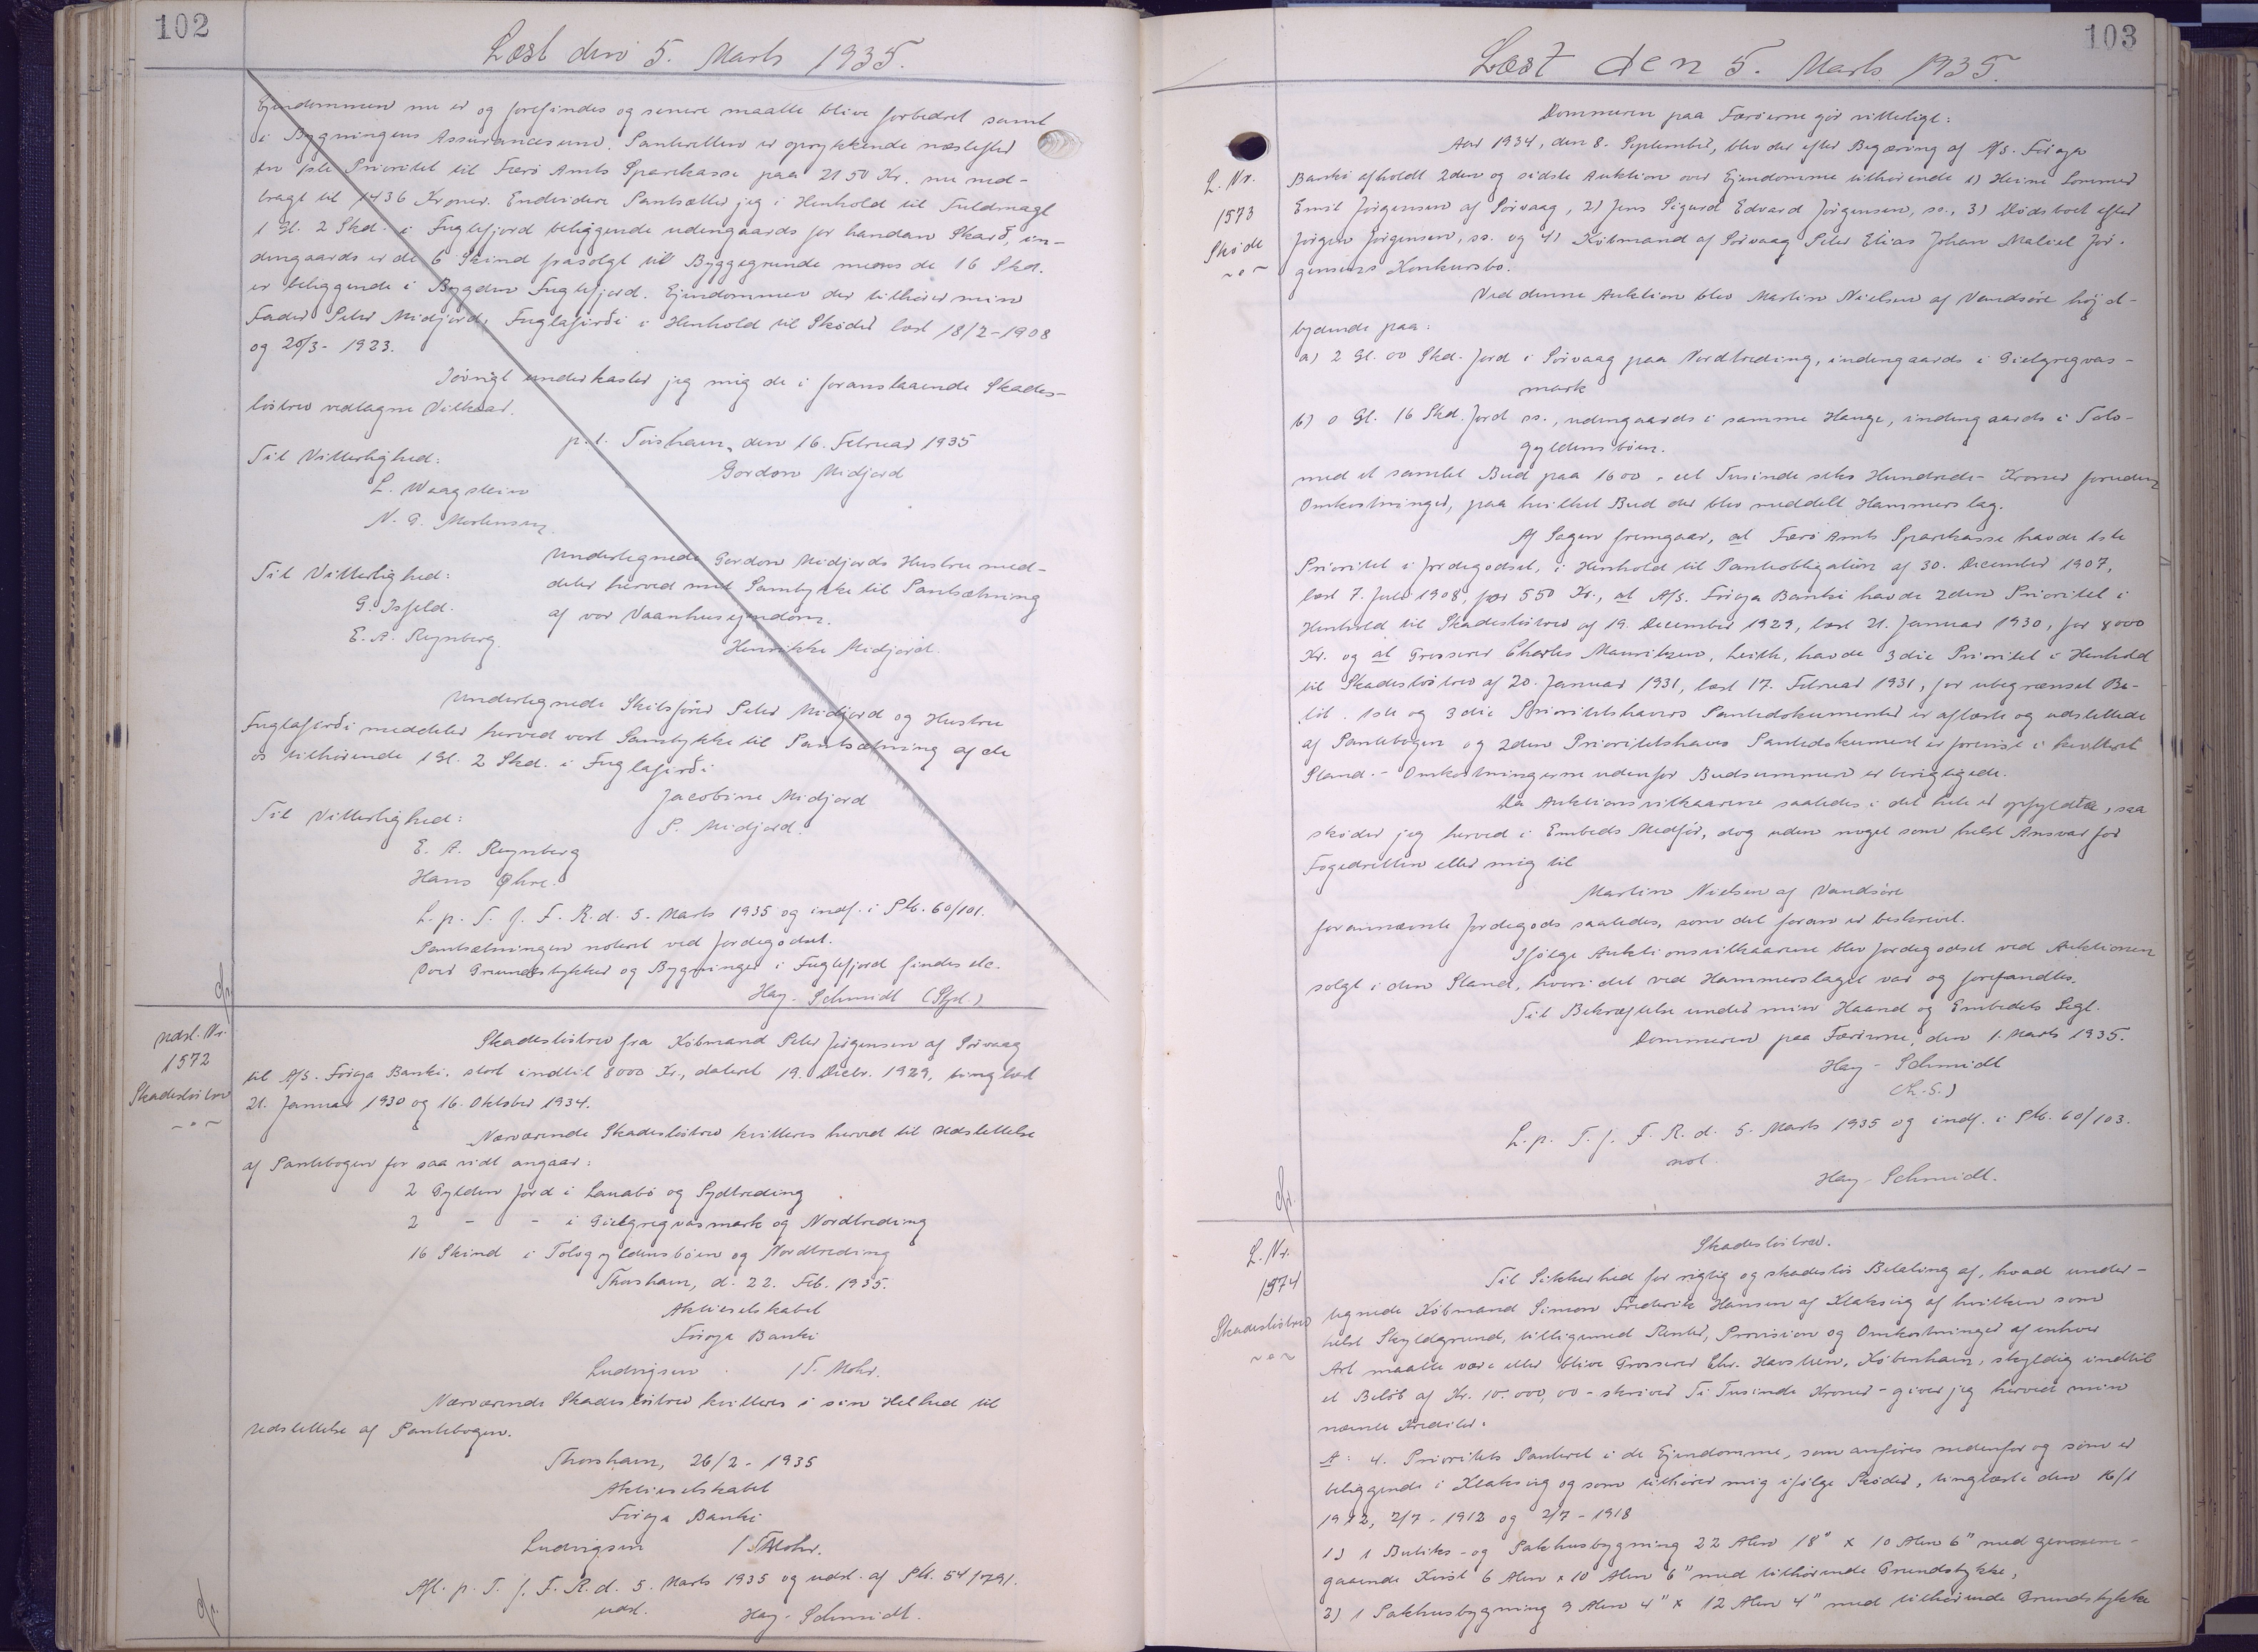 102
Læst den 5. Marts 1935.
Ejendommen nu er og forefindes og senere maatte blive forbedret samt
i Bygningens Assurancesum. Panteretten er oprykkende næstefter
en 1ste Prioritet til Færø Amts Sparekasse paa 2150 Kr. nu ned-
bragt til 1436 Kroner. Endvidere Pantsætter jeg i Henhold til Fuldmagt
1 Gl. 2 Skd. i Fuglefjord beliggende udengaards for handan Skarð, in-
dengaards er de 6 Skind frasolgt til Byggegrunde mens de 16 Skd.
er beliggende i Bygden Fuglefjord. Ejendommen der tilhører min
Fader Peter Midjord, Fuglafirði i Henhold til Skøder læst 18/2-1908
og 20/3-1923.
Iøvrigt underkaster jeg mig de i foranstaaende Skades-
løsbrev vedtagne Vilkaar.
p.t. Tórshavn, den 16. Februar 1935
Til Vitterlighed:
Gordon Midjord
L. Waagstein
N. G. Mortensen
Undertegnede Gordon Midjords Hustru med-
Til Vitterlighed:
deler herved mit Samtykke til Pantsætning
G. Isfeld.
af vor Vaanhusejendom.
E. A. Reynberg.
Henrikke Midjord.
Undertegnede Skibsfører Peter Midjord og Hustru
Fuglafirði meddeler herved vort Samtykke til Pantsætning af de
os tilhørende 1 Gl. 2 Skd. i Fuglafirði
Jacobine Midjord
Til Vitterlighed:
P. Midjord.
E. A. Reynberg
Hans Øhre.
L. p. T. f. F. R. d. 5. Marts 1935 og indf. i Ptb. 60/101.
Pantsætningen noteret ved Jordegodset.
Over Grundstykker og Bygninger i Fuglefjord findes etc.
Hay-Schmidt (Sfd.)
Udsl. Nr.
1572
Skadesløsbrev
Skadesløsbrev fra Købmand Peter Jørgensen af Sørvaag
til A/S. Føroya Banki, stort indtil 8000 Kr., dateret 19. Decbr. 1929, tinglæst
21. Januar 1930 og 16. Oktober 1934.
Nærværende Skadesløsbrev kvitteres herved til Udslettelse
af Pantebogen for saa vidt angaar:
2 Gylden Jord i Lanabø og Sydtreding
2 - - i Gielgregvasmark og Nordtreding
16 Skind i Tologyldensbøen og Nordtreding
Thorshavn, d. 22. Feb. 1935.
Aktieselskabet
Føroya Banki
Ludvigsen / T. Mohr.
Nærværende Skadesløsbrev kvitteres i sin Helhed til
Udslettelse af Pantebogen.
Thorshavn, 26/2-1935
Aktieselskabet
Føroya Banki
Ludvigsen / T. Mohr.
Afl. p. T. f. F. R. d. 5. Marts 1935 og udsl. af Ptb. 54/791.
udsl.
Hay-Schmidt.
103
Læst den 5. Marts 1935.
Dommeren paa Færøerne gør vitterligt:
Aar 1934, den 8. September, blev der efter Begæring af A/S. Føroya
L. Nr.
1573
Skøde
Banki afholdt 2den og sidste Auktion over Ejendomme tilhørende 1) Heine Lommer
Emil Jørgensen af Sørvaag, 2) Jens Sigurd Edvard Jørgensen, ss., 3) Dødsboet efter
Jørgen Jørgensen, ss. og 4) Købmand af Sørvaag Peter Elias Johan Matiel Jør-
gensens Konkursbo.
Ved denne Auktion blev Martin Nielsen af Vandsøre højst-
bydende paa:
a) 2 Gl. 00 Skd. Jord i Sørvaag paa Nordtreding, indengaards i Gielgregvas-
mark
b) 0 Gl. 16 Skd. Jord ss., udengaards i samme Hauge, indengaards i Tolo-
gyldensbøen.
med et samlet Bud paa 1600 - eet Tusinde seks Hundrede - Kroner foruden
Omkostninger, paa hvilket Bud der blev meddelt Hammerslag.
Af Sagen fremgaar, at Færø Amts Sparekasse havde 1ste
Prioritet i Jordegodset, i Henhold til Panteobligation af 30. December 1907,
læst 7. Juli 1908, for 550 Kr., at A/S. Føroya Banki havde 2den Prioritet i
Henhold til Skadesløsbrev af 19. December 1929, læst 21. Januar 1930, for 8000
Kr. og at Grosserer Charles Mauritzen, Leith, havde 3die Prioritet i Henhold
til Skadesløsbrev af 20. Januar 1931, læst 17. Februar 1931, for ubegrænset Be-
løb. 1ste og 3die Prioritetshavers Pantedokumenter er aflæste og udslettede
af Pantebogen og 2den Prioritetshavers Pantedokument er forevist i kvitteret
Stand. - Omkostningerne udenfor Budsummen er berigtigede.
Da Auktionsvilkaarene saaledes i det hele er opfyldte, saa
skøder jeg herved i Embeds Medfør, dog uden noget som helst Ansvar for
Fogedretten eller mig til
Martin Nielsen af Vandsøre
forannævnte Jordegods saaledes, som det foran er beskrevet.
Ifølge Auktionsvilkaarene blev Jordegodset ved Auktionen
solgt i den Stand, hvori det ved Hammerslaget var og forefandtes.
Til Bekræftelse under min Haand og Embedets Segl.
Dommeren paa Færøerne, den 1. Marts 1935.
Hay-Schmidt
(L.S.)
L. p. T. f. F. R. d. 5. Marts 1935 og indf. i Ptb. 60/103.
not.
Hay-Schmidt.
L. Nr.
1574
Skadesløsbrev
Skadesløsbrev.
Til Sikkerhed for rigtig og skadesløs Betaling af, hvad under-
tegnede Købmand Simon Frederik Hansen af Klaksvig af hvilken som
helst Skyldgrund, tilligemed Renter, Provision og Omkostninger af enhver
Art maatte være eller blive Grosserer Chr. Havsteen, København, skyldig indtil
et Beløb af Kr. 10.000,00 - skriver Ti Tusinde Kroner - giver jeg herved min
nævnte Kreditor:
A: 4. Prioritets Panteret i de Ejendomme, som anføres nedenfor og som er
beliggende i Klaksvig og som tilhører mig ifølge Skøder, tinglæste den 16/1
1912, 2/7-1912 og 2/7-1918
1) 1 Butiks- og Pakhusbygning 22 Alen 18" x 10 Alen 6" med gennem-
gaaende Kvist 6 Alen x 10 Alen 6" med tilhørende Grundstykke,
2) 1 Pakhusbygning 9 Alen 4" x 12 Alen 4" med tilhørende Grundstykke